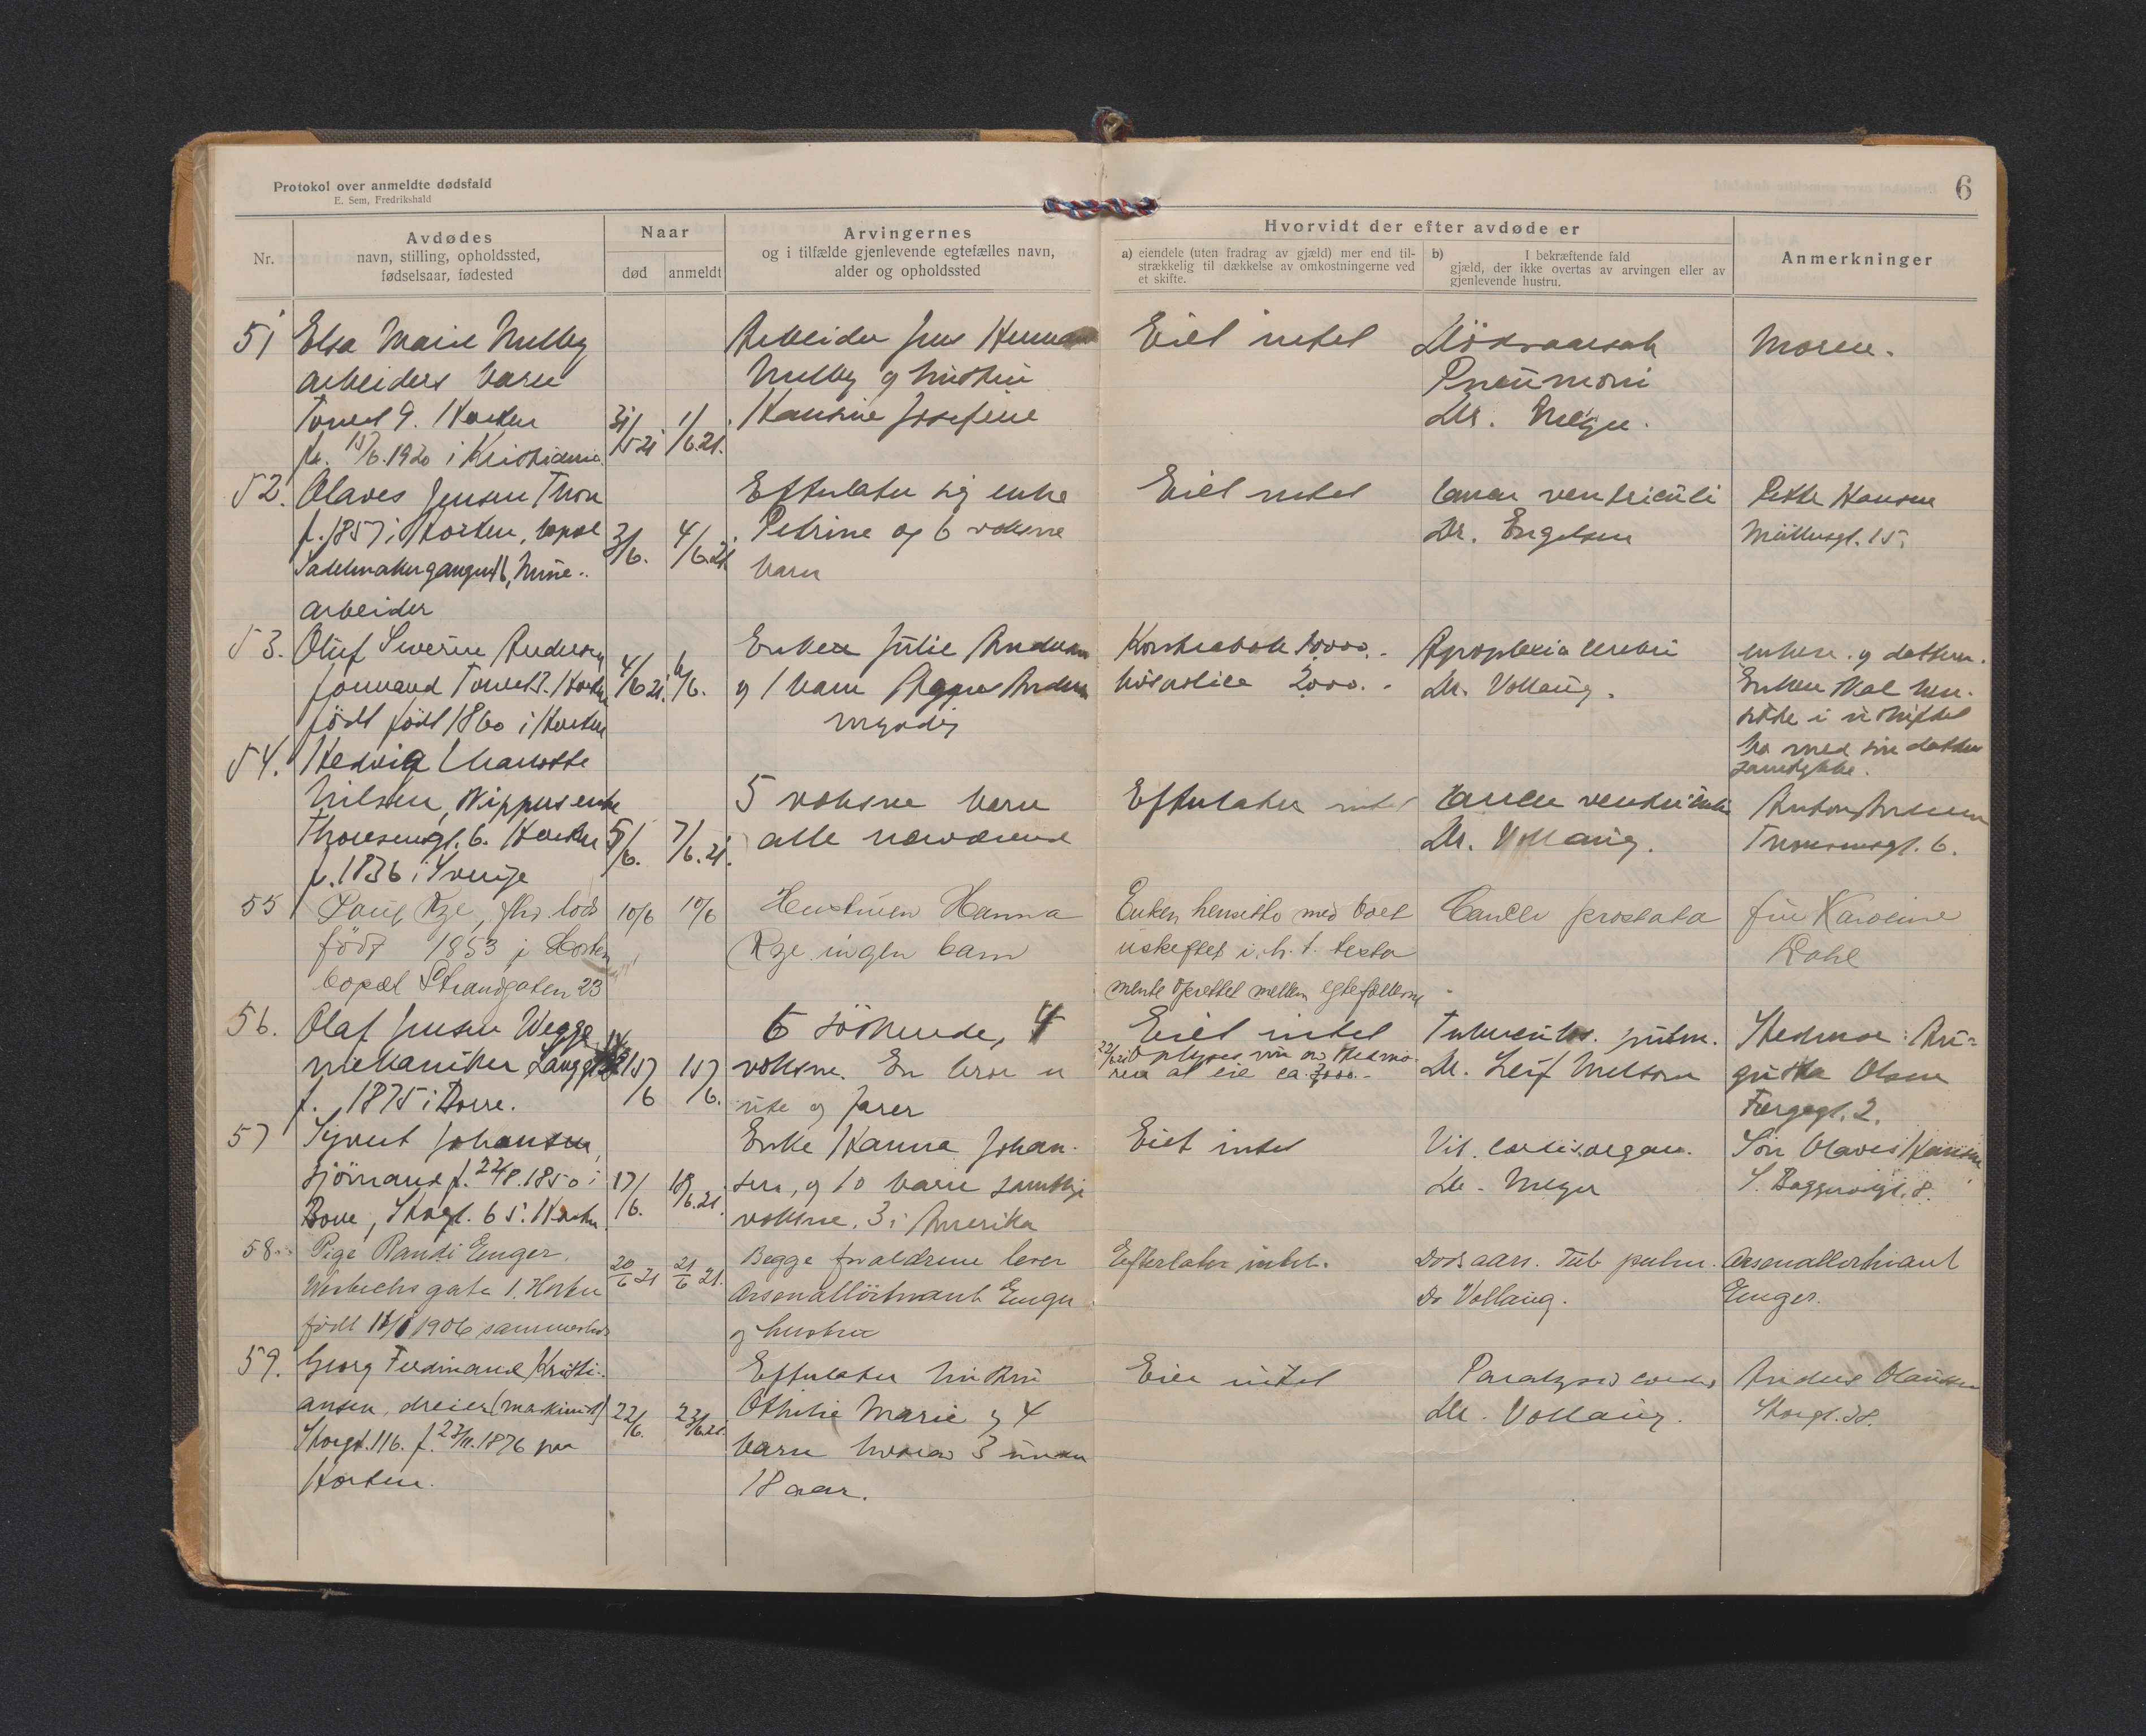 Protokol over anmeldte dødsfald
E. Sem, Fredrikshald
6
Nr.
Avdødes
navn, stilling, opholdssted,
fødselsaar, fødested
Naar
død
anmeldt
Arvingernes
og i tilfælde gjenlevende egtefælles navn,
alder og opholdssted
Hvorvidt der efter avdøde er
a) eiendele (uten fradrag av gjæld) mer end til-
strækkelig til dækkelse av omkostningerne ved
et skifte.
b) I bekræftende fald
gjæld, der ikke overtas av arvingen eller av
gjenlevende hustru.
Anmerkninger
51
Elsa Marie Melby
arbeiders barn
Torvet 9. Horten
f. 15/6.1920 i Kristiania
31/5 21
1/6.21.
Arbeider Jens Herman
Melby og hustru
Hansine Josefine
Eiet intet
Dödsaarsak
Pneumoni
Dr. Meyer.
Moren.
52.
Olaves Jensen Thon
f. 1857 i Horten, bopæl
Sadelmakergangen 16, Mine-
arbeider
3/6.
4/6.21
Efterlater sig enke
Petrine og 6 voksne
barn
Eiet intet
Cancer ventriculi
Dr. Engelsen
Petter Hansen
Möllergt. 15.
53.
Oluf Severin Andersen
formand Torvet 2. Horten
födt födt 1860 i Horten
4/6 21.
6/6.
Enken Julie Andersen
og 1 barn Agnes Andersen
myndig
Kontrabok 10000.-
hösholie 2000.-
Apoplexia cerebri
Dr. Vollaug.
enken og datteren.
Enken skal hen-
sitte i uskiftet
bo med sin datters
samtykke.
54.
Hedvig Charlotte
Nilsen, Skippers enke
Thoresensgt. 6. Horten
f. 1836 i Sverige
5/6.
7/6.21.
5 voksne barn
alle nærværende
Efterlater intet
Cancer ventriculi
Dr. Vollaug.
Anton Andersen
Thoresensgt. 6.
55
Paul Rye, fhv. lods
født 1853 i Horten
bopæl Strandgaten 23
10/6
10/6
Hustruen Hanna
Rye ingen barn
Enken hensitte med boet
uskiftet i. h. t. testa
mente oprettet mellem egtefællerne
Cancer prostata
fru Karoline
Dahl
56.
Olaf Jensen Wegge
mekaniker Langgt
f. 1875 i Borre.
15/6
15/6.
6 söskende, 4
voksne. En bror er
ute og farer
Eiet intet
22/6 21 Oplyses nu av Stedmo-
ren at eie ca. 3000.-
Tuberculos. pulm.
Dr. Leif Melsom
Stedmor: Au-
gusta Olsen
Færgegt. 2.
57
Syvert Johansen,
sjömand f. 22/8.1850 i
Borre, Storgt. 65. Horten.
17/6.
18/6.21.
Enke Hanna Johan-
sen, og 10 barn samtlige
voksne. 3 i Amerika
Eiet intet
Vit. cordis organ.
Dr. Meyer
Sön Olaves Hansen
S. Baggeröigt. 8.
58.
Pige Randi Enger.
gate 1. Horten
født 1906 sammesteds
20/6 21
21/6 21.
Begge forældrene lever
Arsenallöitnant Enger
og hustru
Efterlater intet.
Dödsaars. Tub. pulm.
Dr Vollaug.
Arsenalløitnant
Enger.
59.
Georg Ferdinand Kristi-
ansen, dreier (maskinist)
Storgt. 116. f. 23/11.1876 paa
Horten.
22/6.
23/6.21.
Efterlater hustru
Othilie Marie og 4
barn hvorav 3 under
18 aar.
Eier intet
Paralysis cordis
Dr. Vollaug.
Anders Olausen
Storgt. 38.